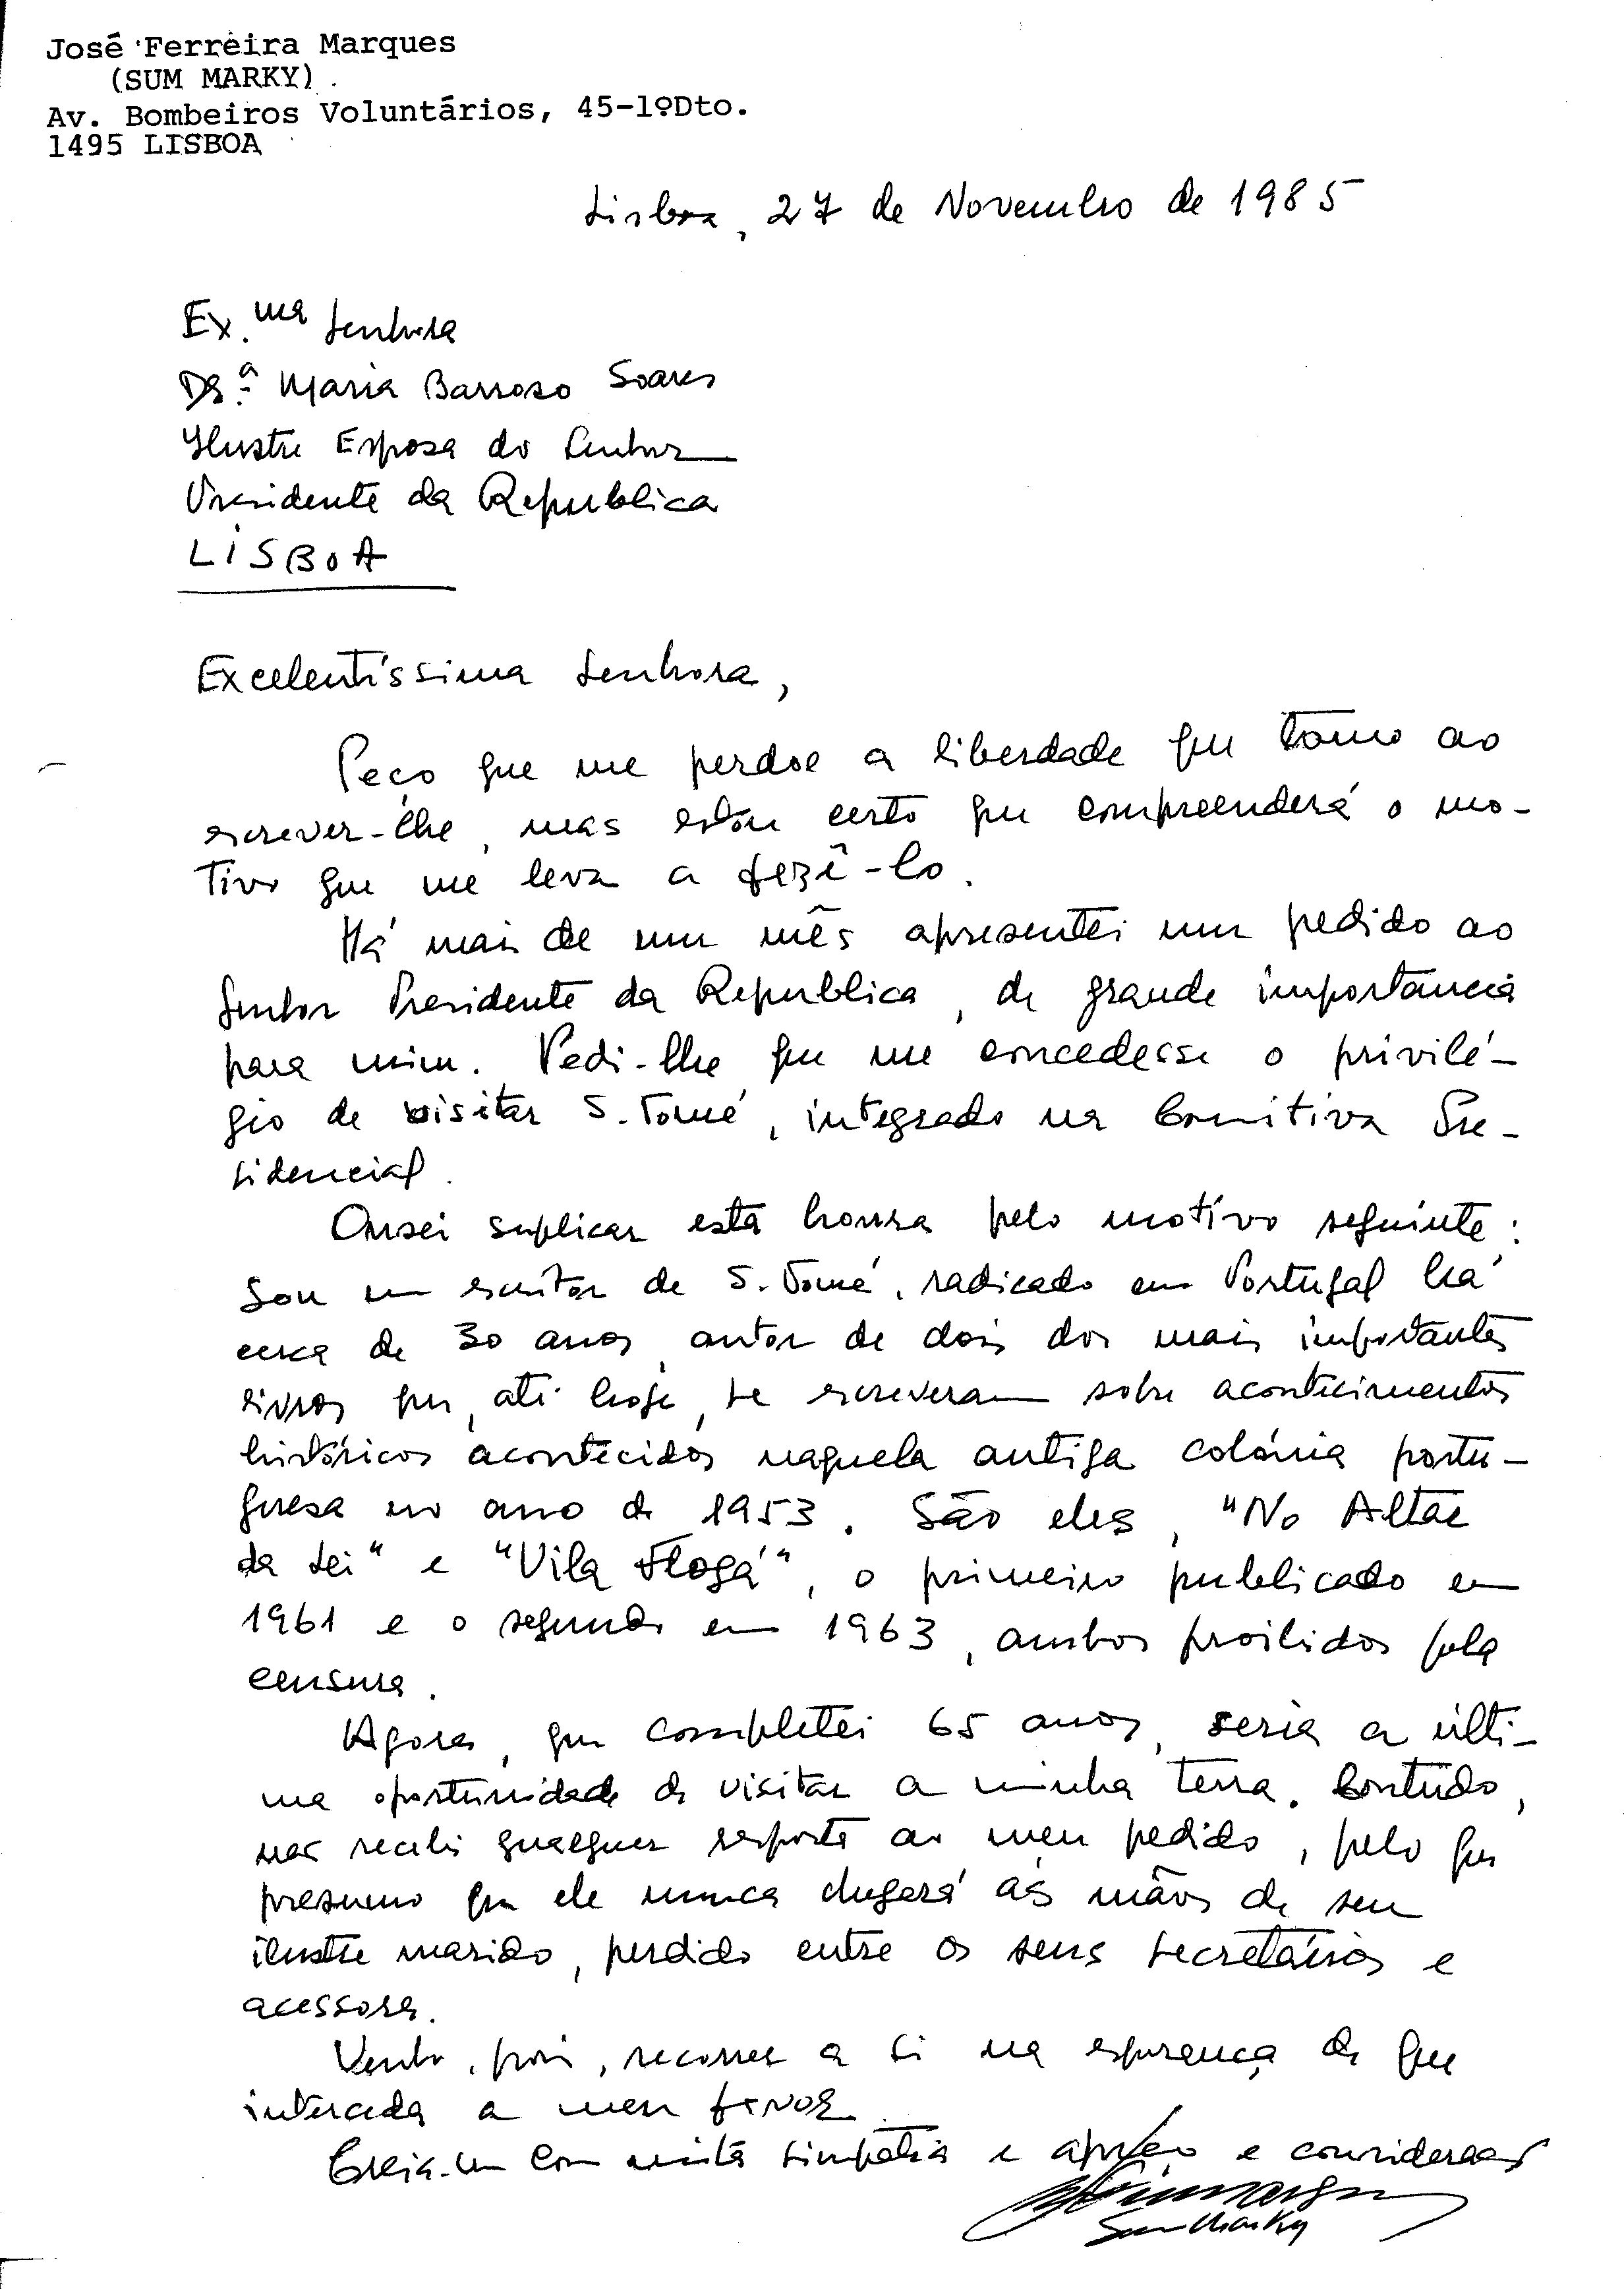 José Ferreira Marques
(SUM MARKY)
Av. Bombeiros Voluntários, 45-1ºDto.
1495 LISBOA
Lisboa, 27 de Novembro de 1985
Ex.ma Senhora
Dr.ª Maria Barroso Soares
Ilustre Esposa do Senhor
Presidente da Republica
LISBOA
Excelentíssima Senhora,
Peço que me perdoe a liberdade que tomo ao
escrever-lhe, mas estou certo que compreenderá o mo-
tivo que me leva a fazê-lo.
Há mais de um mês apresentei um pedido ao
Senhor Presidente da Republica, de grande importancia
para mim. Pedi-lhe que me concedesse o privilé-
gio de visitar S. Tomé, integrado na Comitiva Pre-
sidencial.
Ousei suplicar esta honra pelo motivo seguinte:
Sou um escritor de S. Tomé, radicado em Portugal há
cerca de 30 anos, autor de dois dos mais importantes
livros que, até hoje, se escreveram sobre acontecimentos
históricos acontecidos naquela antiga colónia portu-
guesa no ano de 1953. São eles, "No Altar
da Lei" e "Vila Flogá", o primeiro publicado em
1961 e o segundo em 1963, ambos proibidos pela
censura.
Agora, que completei 65 anos, seria a últi-
ma oportunidade de visitar a minha terra. Contudo,
não recebi qualquer resposta ao meu pedido, pelo que
presumo que ele nunca chegará às mãos de seu
ilustre marido, perdido entre os seus secretários e
acessores.
Venho, pois, recorrer a si na esperança de que
interceda a meu favor.
Creia-me com muita simpatia e apreço e consideração
Sum Marky